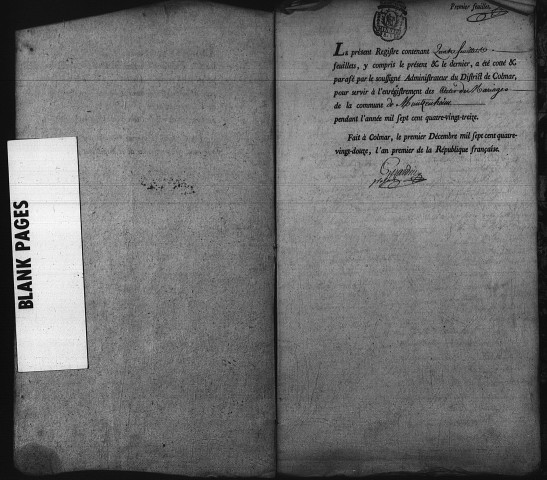 BLANK PAGES
Premier feuillet
LE présent Registre contenant
feuillets, y compris le présent & le dernier, a été cotté &
parafé par le soussigné Administrateur du District de Colmar,
pour servir à l'enrégistrement des Mariages
de la commune de
pendant l'année mil sept cent quatre-vingt-treize.
Fait à Colmar, le premier Décembre mil sept cent quatre-
vingt-douze, l'an premier de la République française.